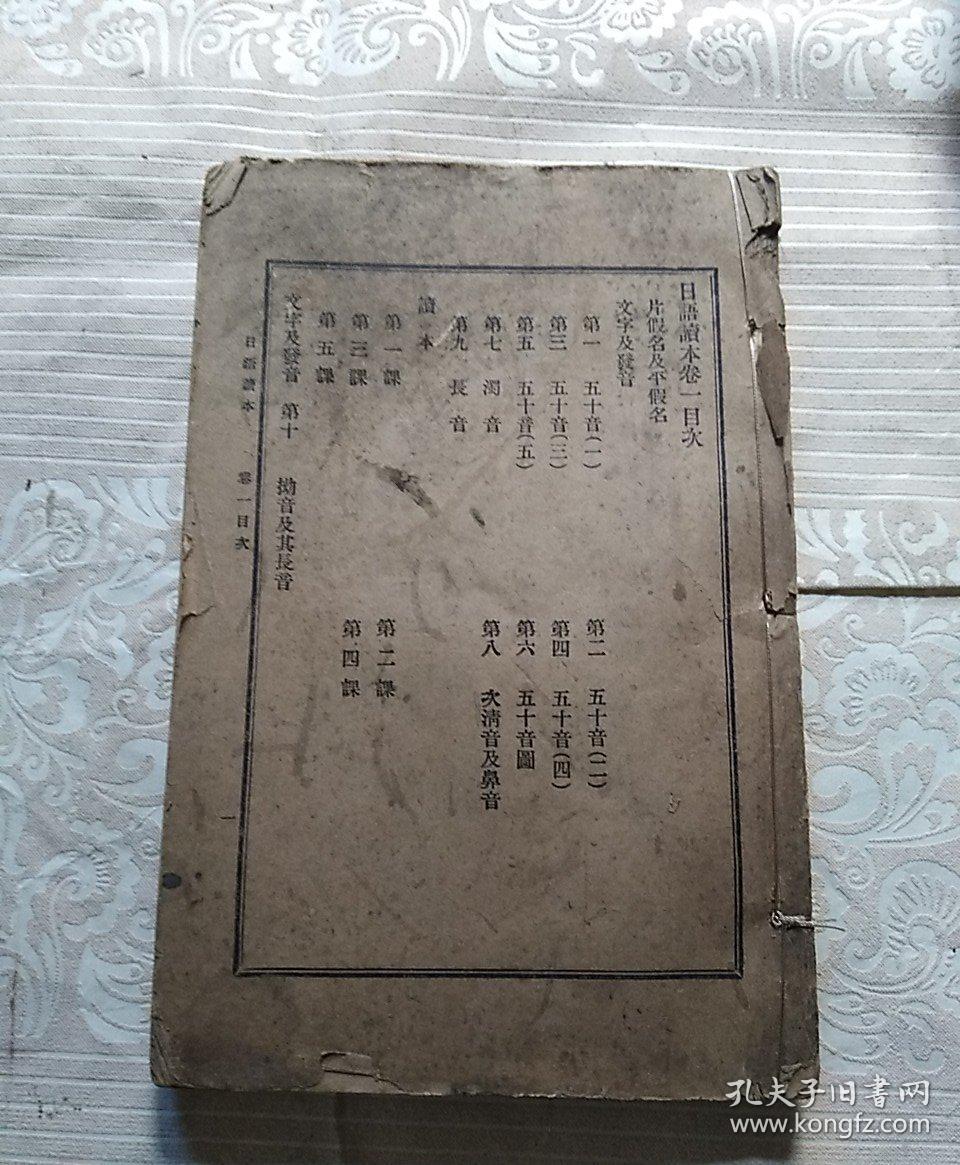 日語讀本卷一目次
片假名及平假名
文字及發音
第一 五十音(一) 第二 五十音(二)
第三 五十音(三) 第四 五十音(四)
第五 五十音(五) 第六 五十音圖
第七 濁音 第八 次清音及鼻音
第九 長音
讀本
第一課 第二課
第三課 第四課
第五課
文字及發音 第十 拗音及其長音
日語讀本 卷一目次
孔夫子旧书网
www.kongfz.com